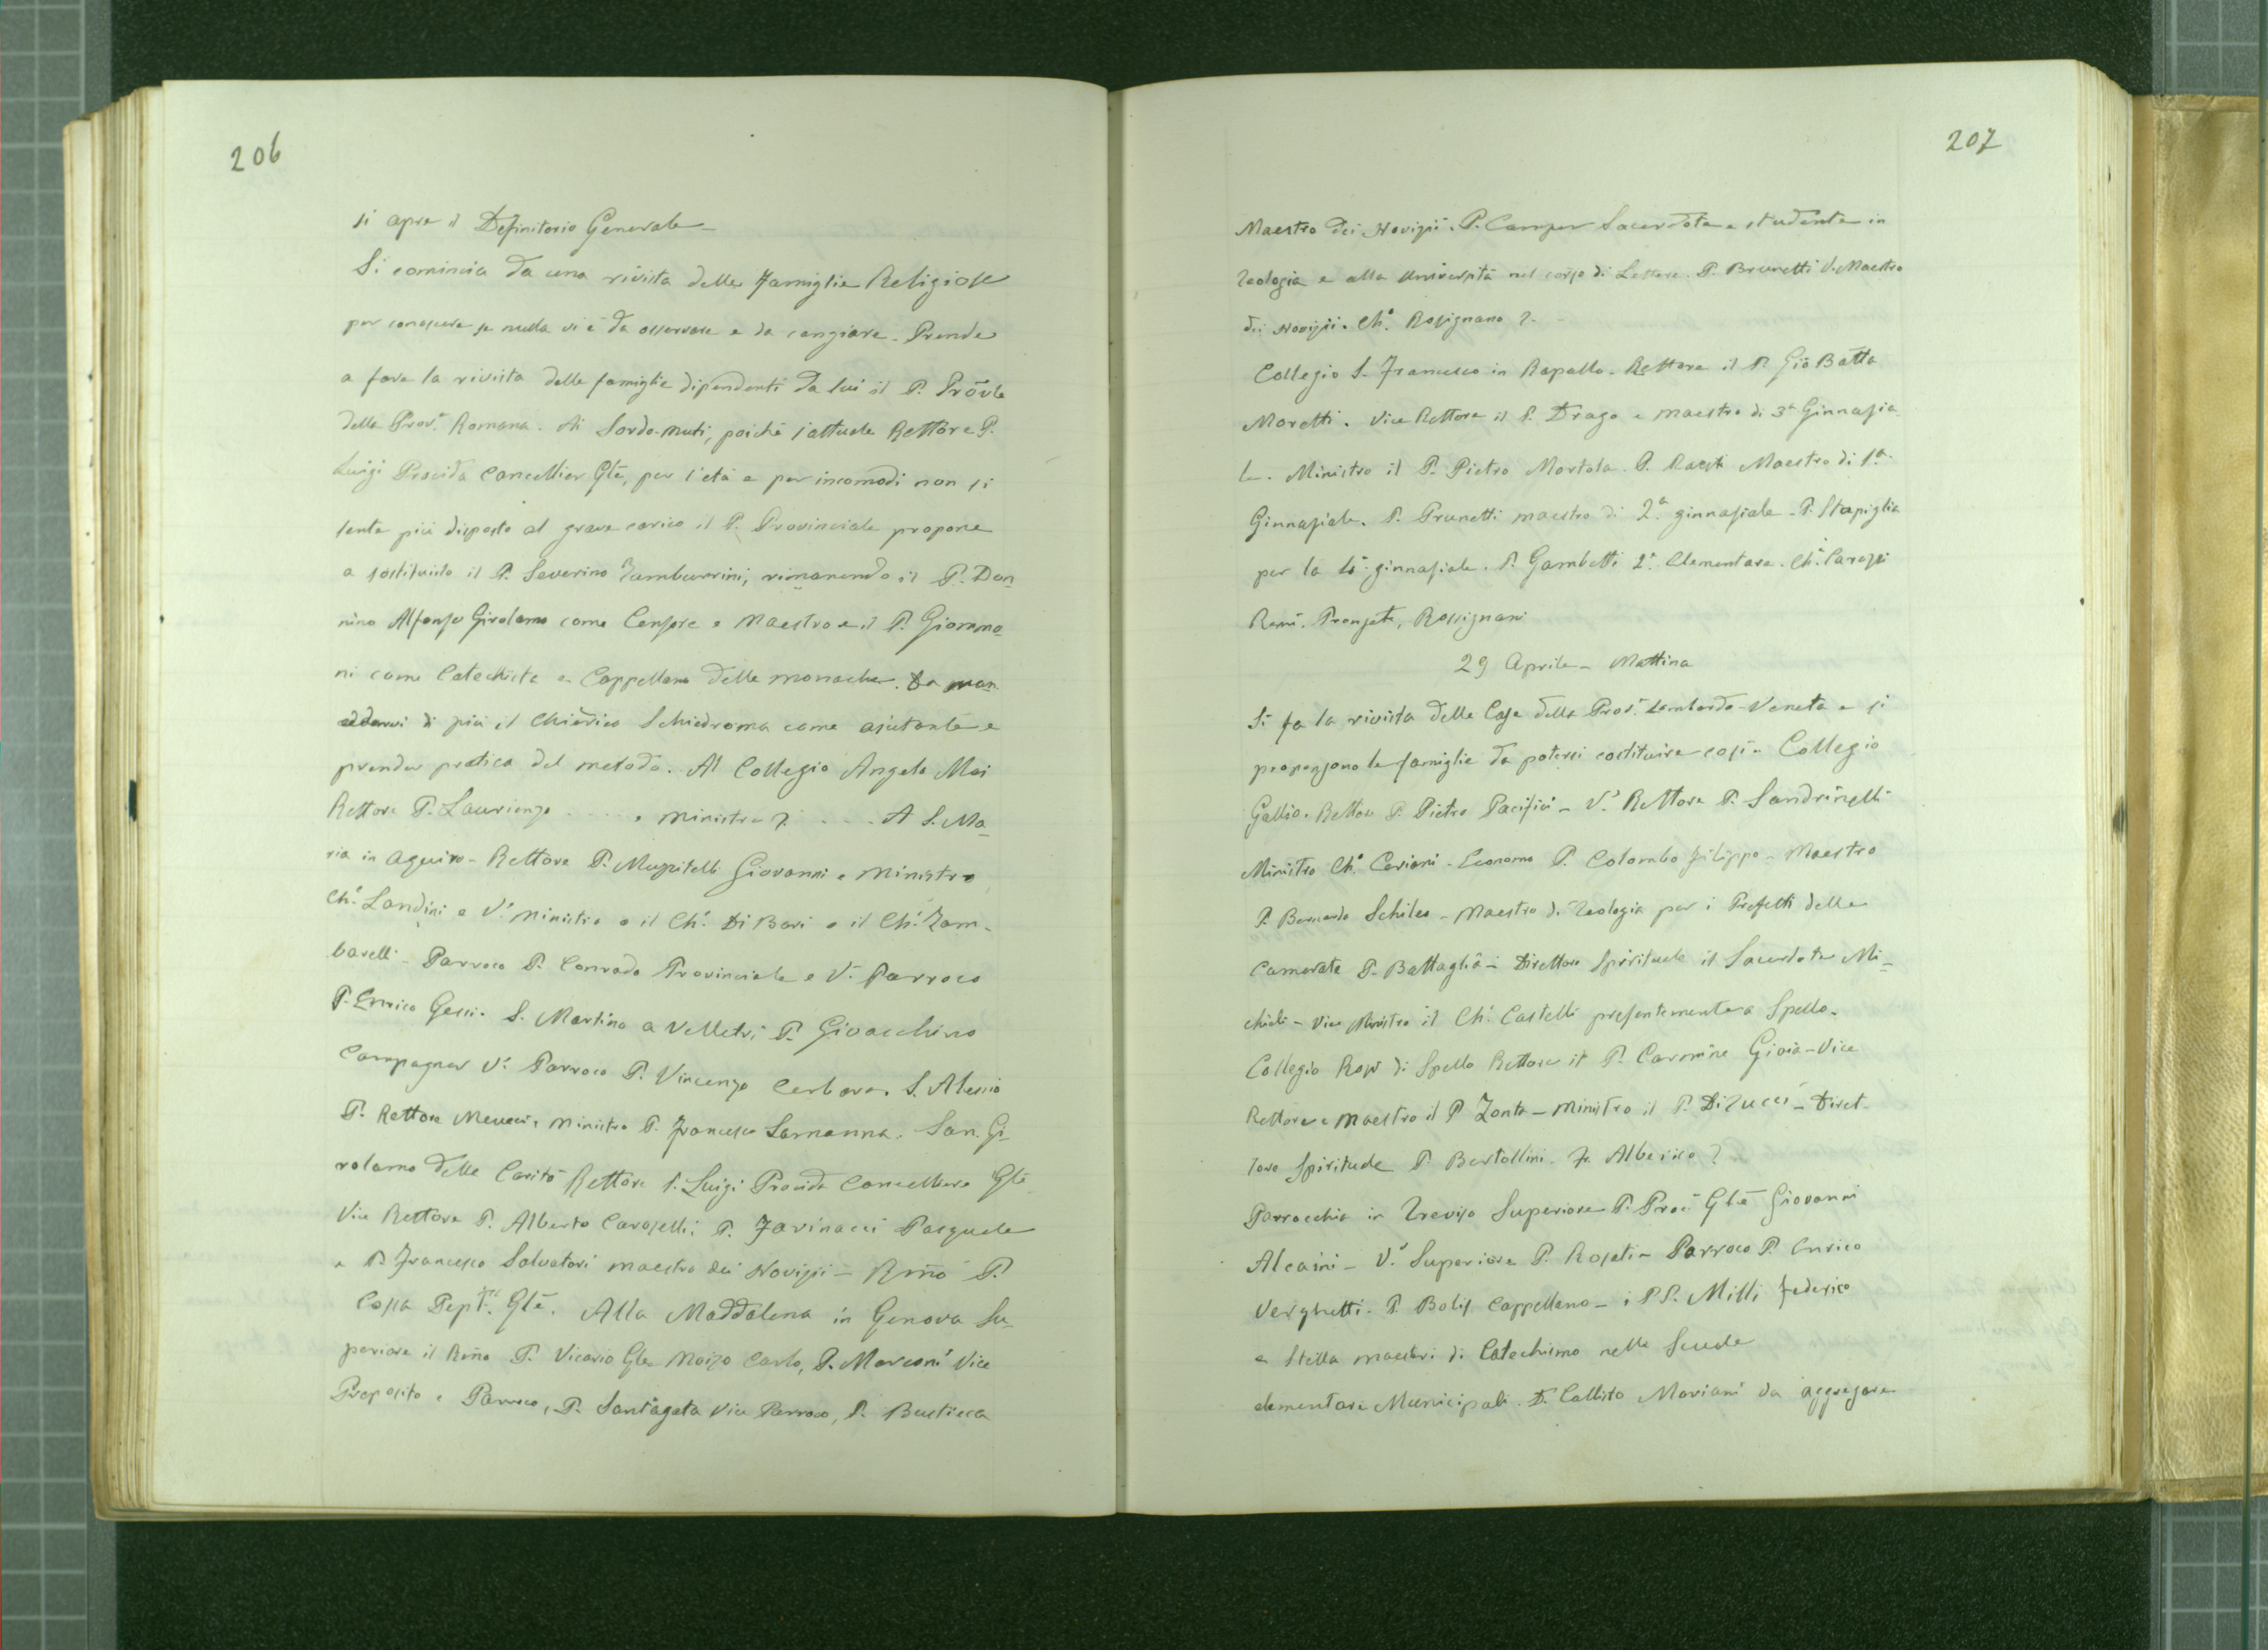 206
si apre il Definitorio Generale –
Si comincia da una rivista delle Famiglie Religiose
per conoscere se nulla vi è da osservare e da cangiare. Prende
a fare la rivista delle famiglie dipendenti da lui il P. Prõvle
della Prov.ª Romana. Ai Sordo-muti, poichè l'attuale Rettore P.
Luigi Procida Cancellier Glē, per l'età e per incomodi non si
sente più disposto al grave carico il P. Provinciale propone
a sostituirlo il P. Severino Tamburrini, rimanendo il P. Don
nino Alfonso Girolamo come Censore e Maestro e il P. Giomma-
ni come Catechista e Cappellano delle monache.
di più il Chierico Schiedroma come ajutante e
prender pratica del metodo. Al Collegio Angelo Mai
Rettore P. Laurienzo . . . . e Ministro ? . . . . A S. Ma-
ria in Aquiro – Rettore P. Muzzitelli Giovanni e Ministro
Ch.º Landini e V.º Ministro o il Ch.º Di Bari o il Ch.º Zam-
barelli – Parroco P. Conrado Provinciale e V.º Parroco
P. Enrico Gessi. S. Martino a Velletri P. Gioacchino
Campagner V.º Parroco P. Vincenzo Cerbara. S. Alessio
P. Rettore Meucci, Ministro P. Francesco Lamanna. San Gi-
rolamo della Carità Rettore P. Luigi Procida Cancelliere Glē
Vice Rettore P. Alberto Caroselli; P. Farinacci Pasquale
e P. Francesco Salvatori maestro dei Novizii – Rm̃o P.
Cossa Glē. Alla Maddalena in Genova Su-
periore il Rm̃o P. Vicario Gle Moizo Carlo, P. Marconi Vice
Preposito e Parroco, P. Santagata Vice Parroco, P. Bustieca
207
Maestro dei Novizii. P. Camper Sacerdote e studente in
Teologia e alla Università nel corso di Lettere. P. Brunetti V. Maestro
dei Novizii. Ch.º Rosignano ?. –
Collegio S. Francesco in Rapallo. Rettore il P. Gio Batta
Moretti. Vice Rettore il P. Drago e maestro di 3ª Ginnasia
le. Ministro il P. Pietro Mortola. P. Maestro di 1ª
Ginnasiale. P. Prunetti maestro di 2ª ginnasiale – P. Stapiglia
per la ginnasiale. P. Gambetti 2ª Elementare. Ch.º Carozzi
Rossignani
29 Aprile – Mattina
Si fa la rivista delle Case della Prov.ª Lombardo-Veneta e si
propongono le famiglie da potersi costituire così – Collegio
Gallio. Rettore P. Pietro Pacifici – V.º Rettore P. Sandrinelli
Ministro Ch.º Ceriani – Economo P. Colombo Filippo – Maestro
P. Bernardo Schileo – Maestro di Teologia per i Prefetti delle
Camerate P. Battaglia – Direttore Spirituale il Sacerdote Mi-
chieli – Vice Ministro il Ch.º Castelli presentemente a Spello.
Collegio Rosi di Spello Rettore il P. Carmine Gioia – Vice
Rettore e Maestro il P. Zonta – Ministro il P. Di Tucci – Diret-
tore Spirituale P. Bertollini – Fr. Alberico ?
Parrocchia in Treviso Superiore P. Proc Glē Giovanni
Alcaini – V.º Superiore P. Rosati – Parroco P. Enrico
Verghetti. P. Bolis Cappellano – i PP. Milli Federico
e Stella maestri di Catechismo nelle Scuole
elementari Municipali. D. Callisto Mariani da aggregare